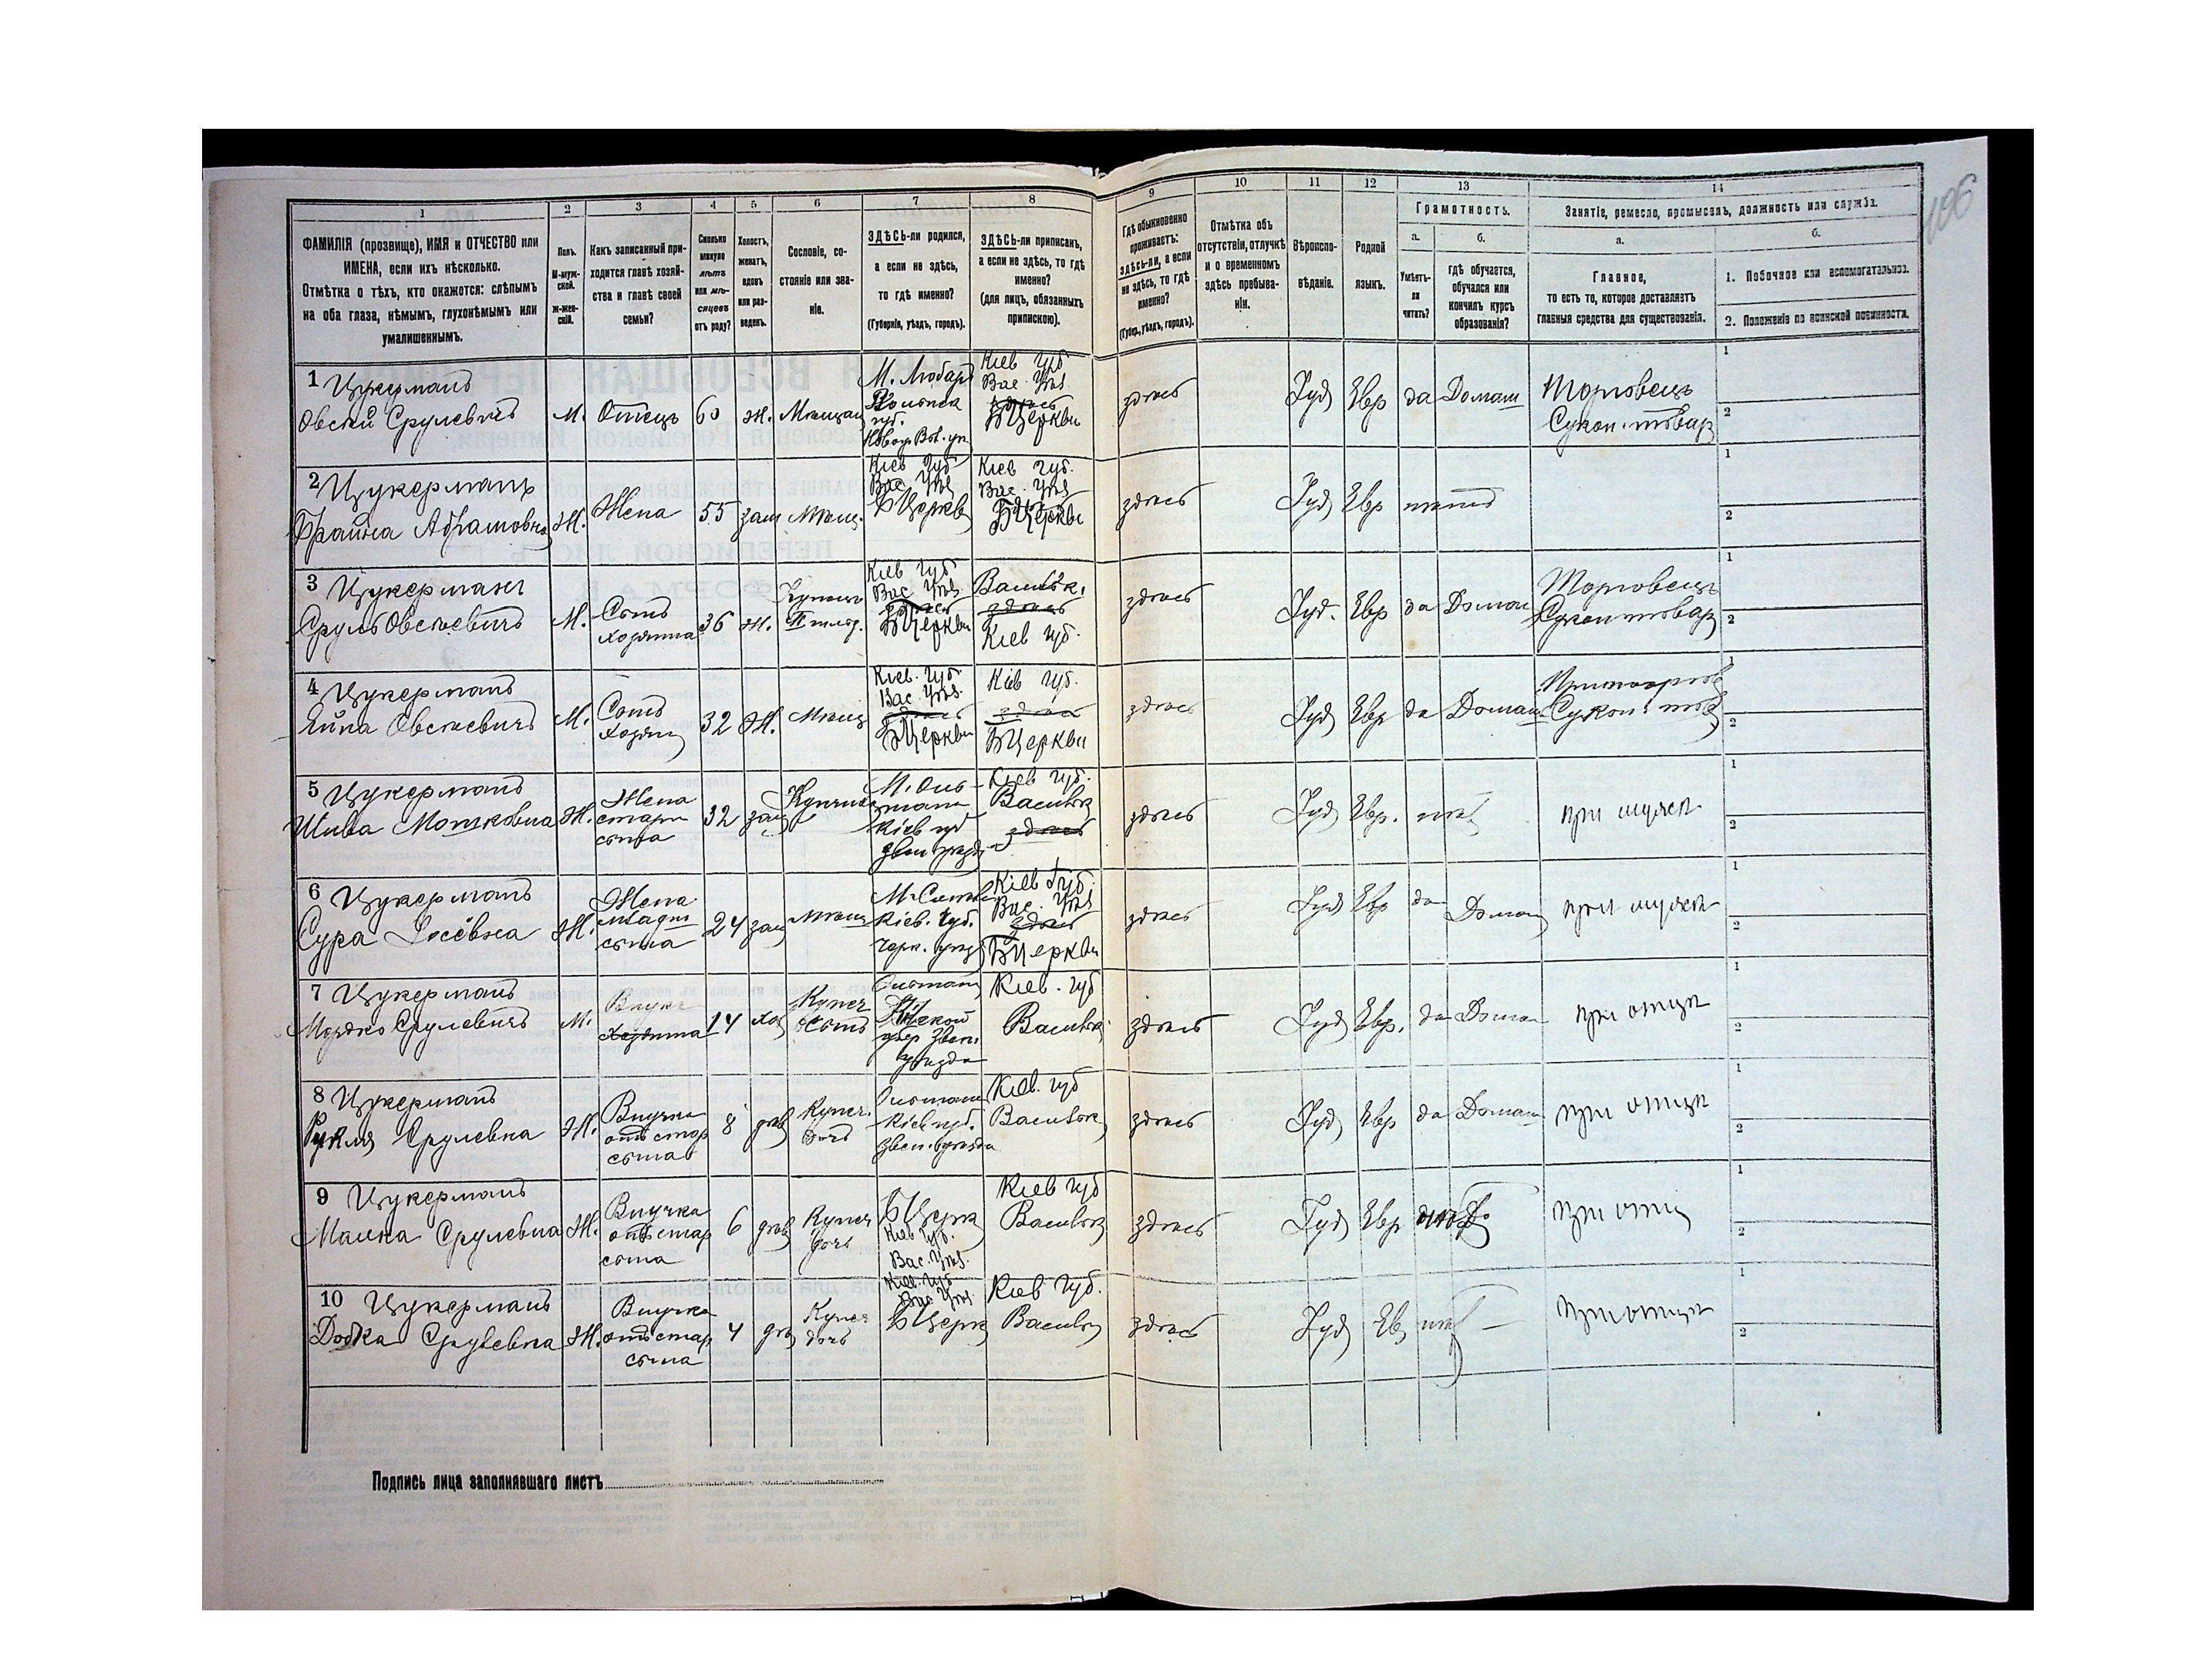 106
1 2 3 4 5 6 7 8 9 10 11 12 13 14
ФАМИЛІЯ (прозвище), ИМЯ и ОТЧЕСТВО или
ИМЕНА, если ихъ нѣсколько.
Отмѣтка о тѣхъ, кто окажется: слѣпымъ
на оба глаза, нѣмымъ, глухонѣмымъ или
умалишеннымъ.
Полъ.
М-муж-
ской.
Ж-жен-
скій.
Какъ записанный при-
ходится главѣ хозяй-
ства и главѣ своей
семьи?
Сколько
минуло
лѣтъ
или мѣ-
сяцевъ
отъ роду?
Холостъ,
женатъ,
вдовъ
или раз-
веденъ.
Сословіе, со-
стояніе или зва-
ніе.
ЗДѢСЬ-ли родился,
а если не здѣсь,
то гдѣ именно?
(Губернія, уѣздъ, городъ).
ЗДѢСЬ-ли приписанъ,
а если не здѣсь, то гдѣ
именно?
(для лицъ, обязанныхъ
припискою).
Гдѣ обыкновенно
проживаетъ:
здѣсь-ли, а если
не здѣсь, то гдѣ
именно?
(Губер., уѣздъ, городъ).
Отмѣтка объ
отсутствіи, отлучкѣ
и о временномъ
здѣсь пребыва-
ніи.
Вѣроиспо-
вѣданіе.
Родной
языкъ.
Грамотность.
а.
Умѣетъ-
ли
читать?
б.
гдѣ обучается,
обучался или
кончилъ курсъ
образованія?
Занятіе, ремесло, промыселъ, должность или служба.
а.
Главное,
то есть то, которое доставляетъ
главныя средства для существованія.
б.
1. Побочное или вспомогательное.
2. Положеніе по воинской повинности.
1 Цукерманъ
Овсѣй Срулевичъ
М. Отецъ 60 ж. Мѣщан
М. Любаръ
Волынск
губ.
Новогр Вол. уѣ
Кіев губ
Вас. Уѣз
здѣсь
БЦеркви
здѣсь Іуд Евр да Домаш
Торговецъ
Сукон. товар
1
2
2 Цукерманъ
Фрайна Абрамовна
Ж. Жена 55 зам Мѣщ.
Кіев Губ
Вас. Уѣз
БЦеркв
Кіев губ.
Вас. Уѣз
БЦеркви
здѣсь Іуд Евр нѣтъ
1
2
3 Цукерманъ
Сруль Овсѣевичъ
М. Сынъ
хозяина
36 ж.
Купецъ
II гильд.
Кіев губ
Вас Уѣз
здѣсь
БЦеркви
Васильк.
здѣсь
Кіев губ.
здѣсь Іуд. Евр да Домаш
Торговецъ
Сукон товар
1
2
4 Цукерманъ
Овсѣевичъ
М. Сынъ
хозяин
32 Ж. Мѣщ
Кіев. Губ
Вас. Уѣз.
здѣсь
БЦеркви
Кіев губ.
здѣсь
БЦеркви
здѣсь Іуд Евр да Домаш
Сукон. тов
1
2
5 Цукерманъ
Шива Мошковна
Ж. Жена
старш
сына
32 зам
М. Оль-
шан
Кіев губ
Звен уѣзда
Кіев губ.
Васильк
здѣсь
здѣсь Іуд Евр. нѣт при мужѣ
1
2
6 Цукерманъ
Сура Іосевна
Ж. Жена
младш
сына
24 зам Мѣщ
Кіев. Губ.
Черк. уѣзд
Кіев Губ.
Вас. Уѣз
здѣсь
БЦеркви
здѣсь Іуд Евр да Домаш при мужѣ
1
2
7 Цукерманъ
Мордко Срулевичъ
М. Внукъ
хозяина
14 хол
Купеч
сынъ
Кіевской
губер Звен.
уѣзда
Кіев. губ
Васильк
здѣсь Іуд Евр. да Домаш при отцѣ
1
2
8 Цукерманъ
Рухля Срулевна
Ж. Внучка
отъ стар
сына
8 дѣв
Купеч.
дочь
Кіев губ.
Звен. уѣзда
Кіев. губ
Васильк
здѣсь Іуд Евр да Домаш при отцѣ
1
2
9 Цукерманъ
Малка Срулевна
Ж. Внучка
отъ стар
сына
6 дѣв
Купеч
дочь
БЦерк
Кіев Губ.
Вас. Уѣз.
Кіев губ
Васильк
здѣсь Іуд Евр при отц
1
2
10 Цукерманъ
Добка Срулевна
Ж. Внучка
отъ стар
сына
4 дѣв
Купеч
дочь
Кіев. Губ
Вас Уѣз.
БЦерк
Кіев Губ.
Васильк
здѣсь Іуд Ев нѣт — при отцѣ
1
2
Подпись лица заполнявшаго листъ